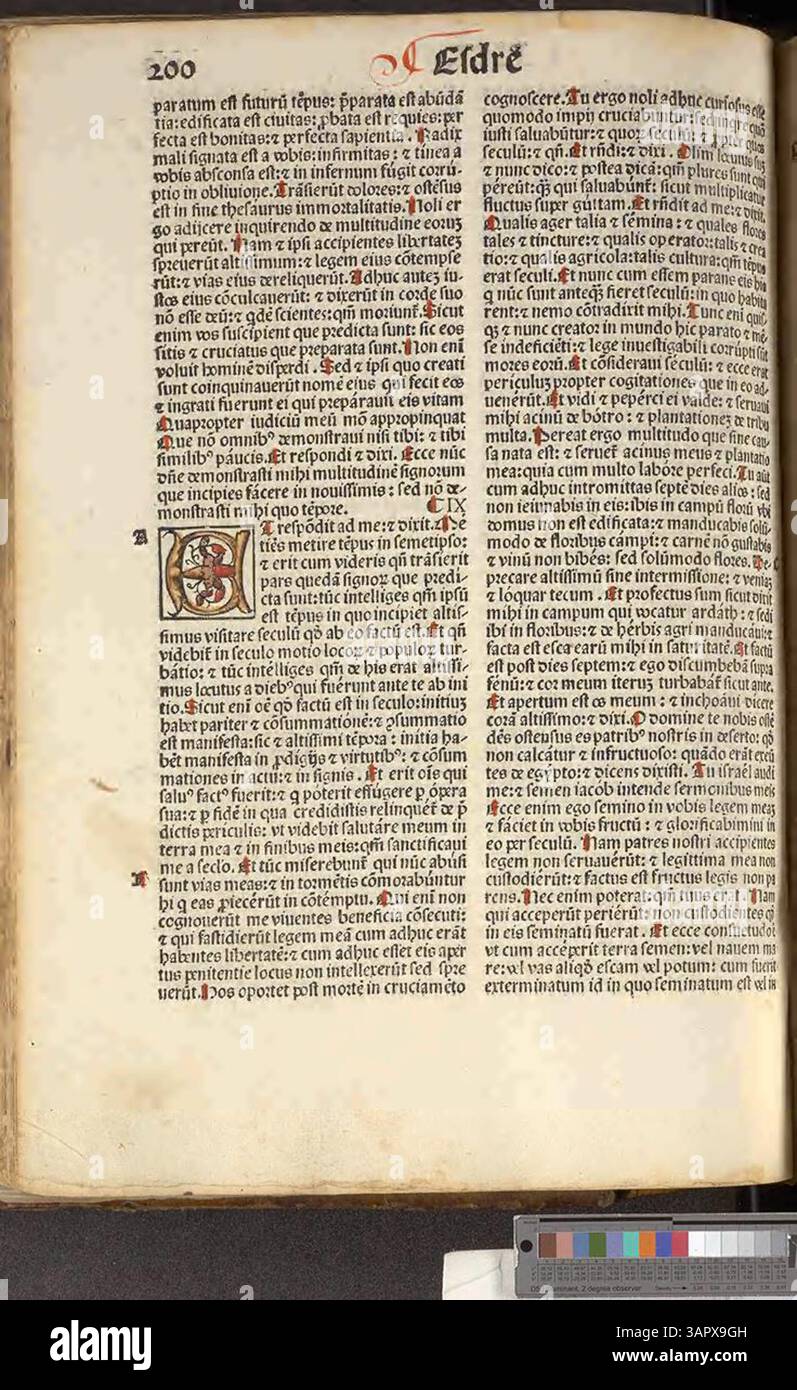 200
Esdre
paratum est futurū tēpus: p̄parata est abūdā
tia: edificata est ciuitas: ꝓbata est requies: per
fecta est bonitas: ⁊ perfecta sapientia. Radix
mali signata est a vobis: infirmitas: ⁊ tinea a
vobis absconsa est: ⁊ in infernum fúgit corru-
ptio in obliuione. Trāsierūt dolores: ⁊ ostēsus
est in fine thesaurus immortalitatis. Noli er
go adijcere inquirendo de multitudine eoruꝫ
qui pereūt. Nam ⁊ ipsi accipientes libertateꝫ
spreuerūt altissimum: ⁊ legem eius cōtempse
rūt: ⁊ vias eius dereliquerūt. Adhuc auteꝫ iu-
stos eius cōculcauerūt: ⁊ dixerūt in corde suo
nō esse deū: ⁊ qdē scientes: qm̄ moriunt̄. Sicut
enim vos suscipient que predicta sunt: sic eos
sitis ⁊ cruciatus que preparata sunt. Non enī
voluit hominē disperdi. Sed ⁊ ipsi quo creati
sunt coinquinauerūt nomē eius qui fecit eos
⁊ ingrati fuerunt ei qui preparauit eis vitam
Quapropter iudiciū meū mō appropinquat
Que nō omnibꝰ demonstraui nisi tibi: ⁊ tibi
similibꝰ paucis. Et respondi ⁊ dixi. Ecce nūc
dn̄e demonstrasti mihi multitudinē signorum
que incipies fácere in nouissimis: sed nō de-
monstrasti mihi quo tēpore. ¶ IX
A
Et respōdit ad me: ⁊ dixit. Mē
tiēs metire tēpus in semetipso:
⁊ erit cum videris qn̄ trāsierit
pars quedā signoꝝ que predi-
cta sunt: tūc intelliges qm̄ ipsū
est tēpus in quo incipiet altis-
simus visitare seculū qd̄ ab eo factū est. Et qn̄
videbit̄ in seculo motio locoꝝ ⁊ populoꝝ tur-
bátio: ⁊ tūc intélliges qm̄ de his erat altissi-
mus locutus a diebꝰ qui fuérunt ante te ab ini
tio. Sicut enī oē qd̄ factū est in seculo: initiuꝫ
habet pariter ⁊ cōsummationē: ⁊ ꝯsummatio
est manifesta: sic ⁊ altissimi tēpora: initia ha-
bēt manifesta in ꝓdigijs ⁊ virtutibꝰ: ⁊ cōsum
mationes in actu: ⁊ in signis. Et erit ois qui
saluꝰ factꝰ fuerit: ⁊ q poterit effúgere ꝑ ópera
sua: ⁊ ꝑ fidē in qua credidistis relinquet̄ de p̄
dictis periculis: vt videbit salutáre meum in
terra mea ⁊ in finibus meis: qm̄ sanctificaui
me a seclo. Et tūc miserebunt̄ qui nūc abúsi
sunt vias meas: ⁊ in tormētis cōmorabúntur
hi q eas ꝓiecérūt in cōtémptu. Qui enī non
cognouerūt me viuentes beneficia cōsecuti:
⁊ qui fastidiérūt legem meā cum adhuc erāt
habentes libertatē: ⁊ cum adhuc esset eis aper
tus penitentie locus non intellexerūt sed spre
uerūt. Hos oportet post mortē in cruciamēto
cognoscere. Tu ergo noli adhuc curiosus esse
quomodo impij cruciabuntur: sed inqre quō
iusti saluabūtur: ⁊ quoꝝ seculū: ⁊ ꝓpter quos
seculū: ⁊ qn̄. Et rn̄di: ⁊ dixi. Olim locutus suꝫ
⁊ nunc dico: ⁊ postea dicā: qm̄ plures sunt qui
péreūt: qꝫ qui saluabūnt̄: sicut multiplicatur
fluctus super guttam. Et rn̄dit ad me: ⁊ dixit.
Qualis ager talia ⁊ sémina: ⁊ quales flores
tales ⁊ tincture: ⁊ qualis operator: talis ⁊ crea
tio: ⁊ qualis agricola: talis cultura: qm̄ tēpus
erat seculi. Et nunc cum essem parans eis his
q nūc sunt anteqꝫ fieret seculū: in quo habita
rent: ⁊ nemo cōtradixit mihi. Tunc enī quis
qꝫ ⁊ nunc creator in mundo hic parato ⁊ mē-
se indeficiēti: ⁊ lege inuestigabili corrúpti sūt
mores eorū. Et cōsideraui seculū: ⁊ ecce erat
periculuꝫ propter cogitationes que in eo ad-
uenérūt. Et vidi ⁊ pepérci ei valde: ⁊ seruaui
mihi acinū de bótro: ⁊ plantationeꝫ de tribu
multa. Pereat ergo multitudo que sine cau-
sa nata est: ⁊ seruet̄ acinus meus ⁊ plantatio
mea: quia cum multo labóre perfeci. Tu aūt
cum adhuc intromittas septē dies alios: sed
non ieiunabis in eis: ibis in campū florū vbi
domus non est edificata: ⁊ manducabis solū-
modo de floribus campi: ⁊ carnē nō gustabis
⁊ vinū non bibés: sed solūmodo flores. De-
precare altissimū sine intermissione: ⁊ veniaꝫ
⁊ lóquar tecum. Et profectus sum sicut dixit
mihi in campum qui vocatur ardath: ⁊ sedi
ibi in floribus: ⁊ de hérbis agri manducáui: ⁊
facta est esca earū mihi in saturitatē. Et factū
est post dies septem: ⁊ ego discumbebā supra
fénū: ⁊ cor meum iteruꝫ turbabat̄ sicut ante.
Et apertum est os meum: ⁊ inchoáui dicere
corā altissimo: ⁊ dixi. O domine te nobis ostē
dēs ostensus es patribꝰ nostris in deserto: qd̄
non calcátur ⁊ infructuoso: quādo erāt exeū
tes de egypto: ⁊ dicens dixisti. Tu israél audi
me: ⁊ semen iacób intende sermonibus meis
Ecce enim ego semino in vobis legem meaꝫ
⁊ fáciet in vobis fructū: ⁊ glorificabimini in
eo per seculū. Nam patres nostri accipientes
legem non seruauérūt: ⁊ legittima mea non
custodiérūt: ⁊ factus est fructus legis non pa
rens. Nec enim poterat: qm̄ tuus erat. Nam
qui acceperūt periérūt: non custodientes qd̄
in eis seminatū fuerat. Et ecce consuetudo ē
vt cum accéperit terra semen: vel nauem ma
re: vel vas aliqd̄ escam vel potum: cum fuerit
exterminatum id in quo seminatum est vel in
alamy
Image ID: 3APX9GH
www.alamy.com